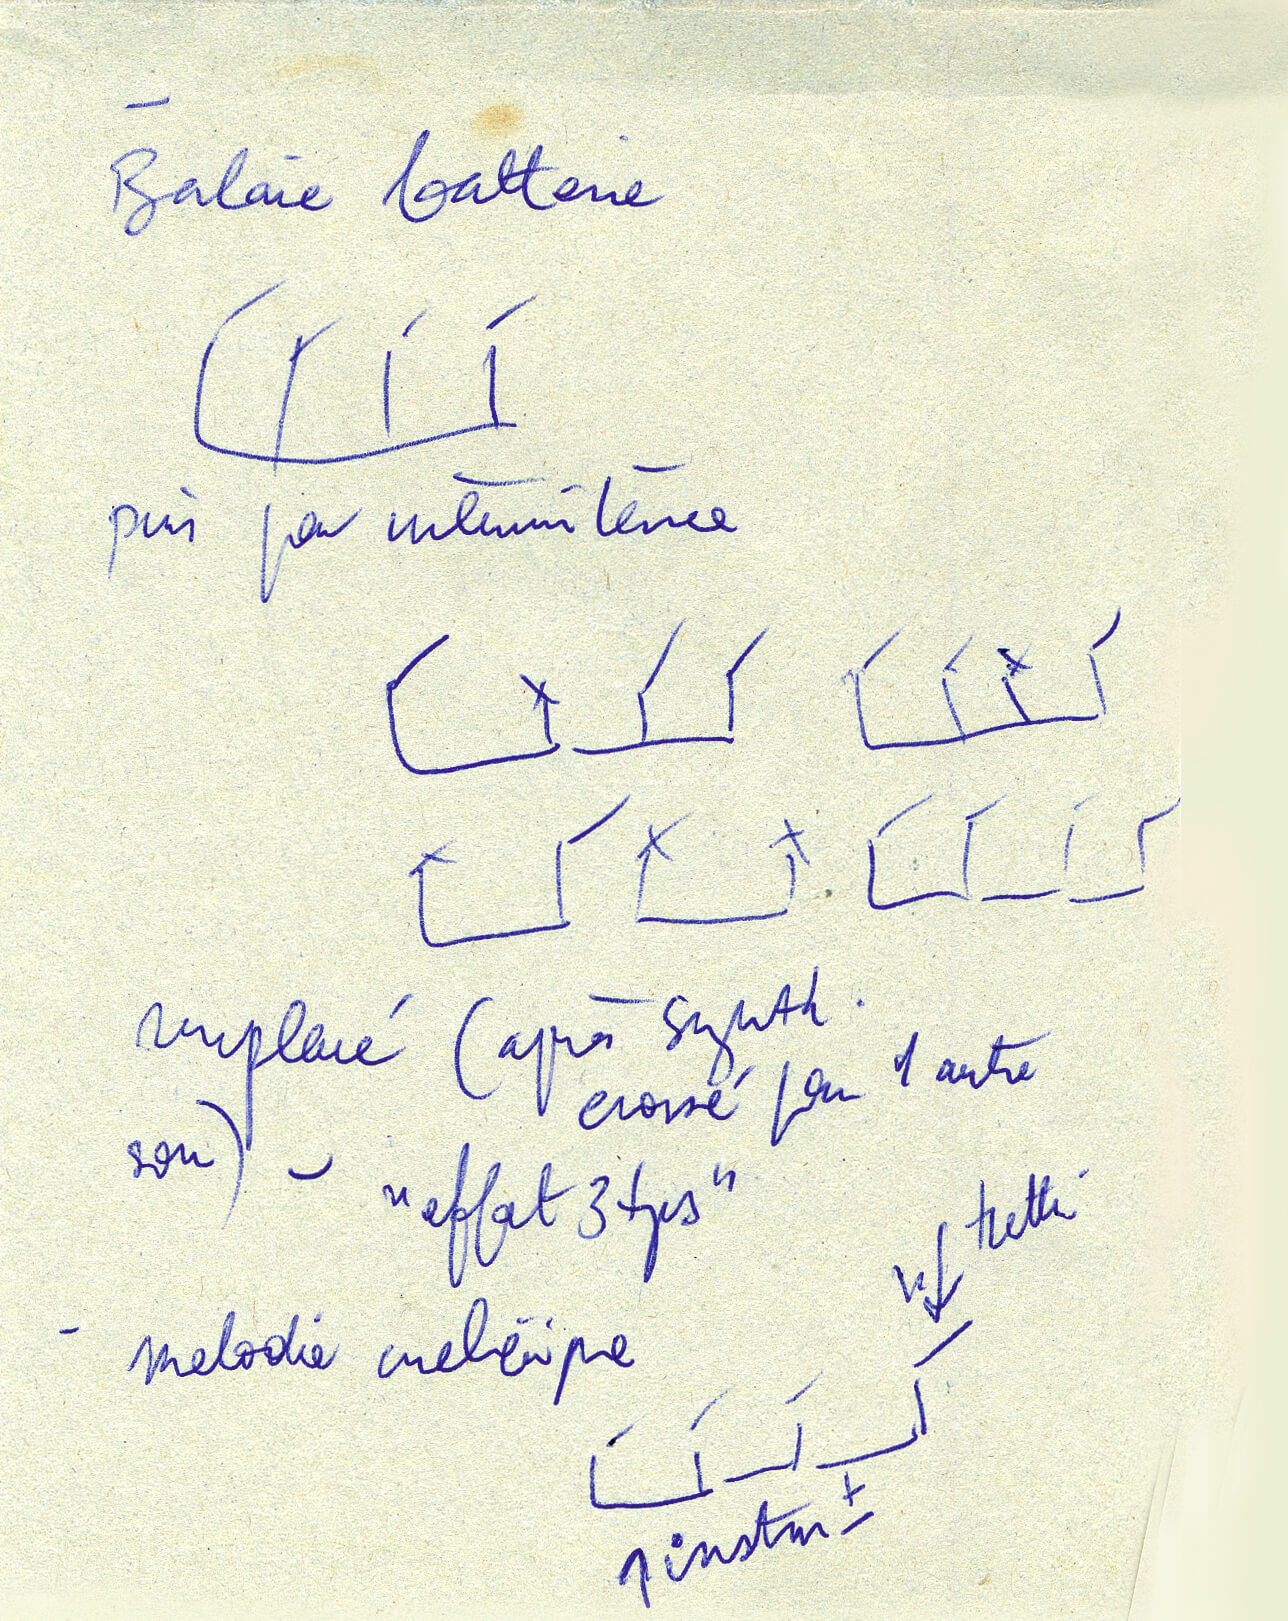 Balaie batterie
puis par intermitence
remplacé (après synth.
croisé par 1 autre
son) – "effet 3 tps"
- melodie
1 instru ±